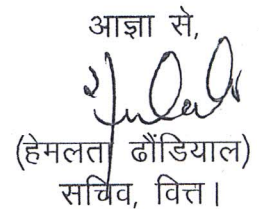 आज्ञा से,
(हेमलता ढौंडियाल)
सचिव, वित्त।